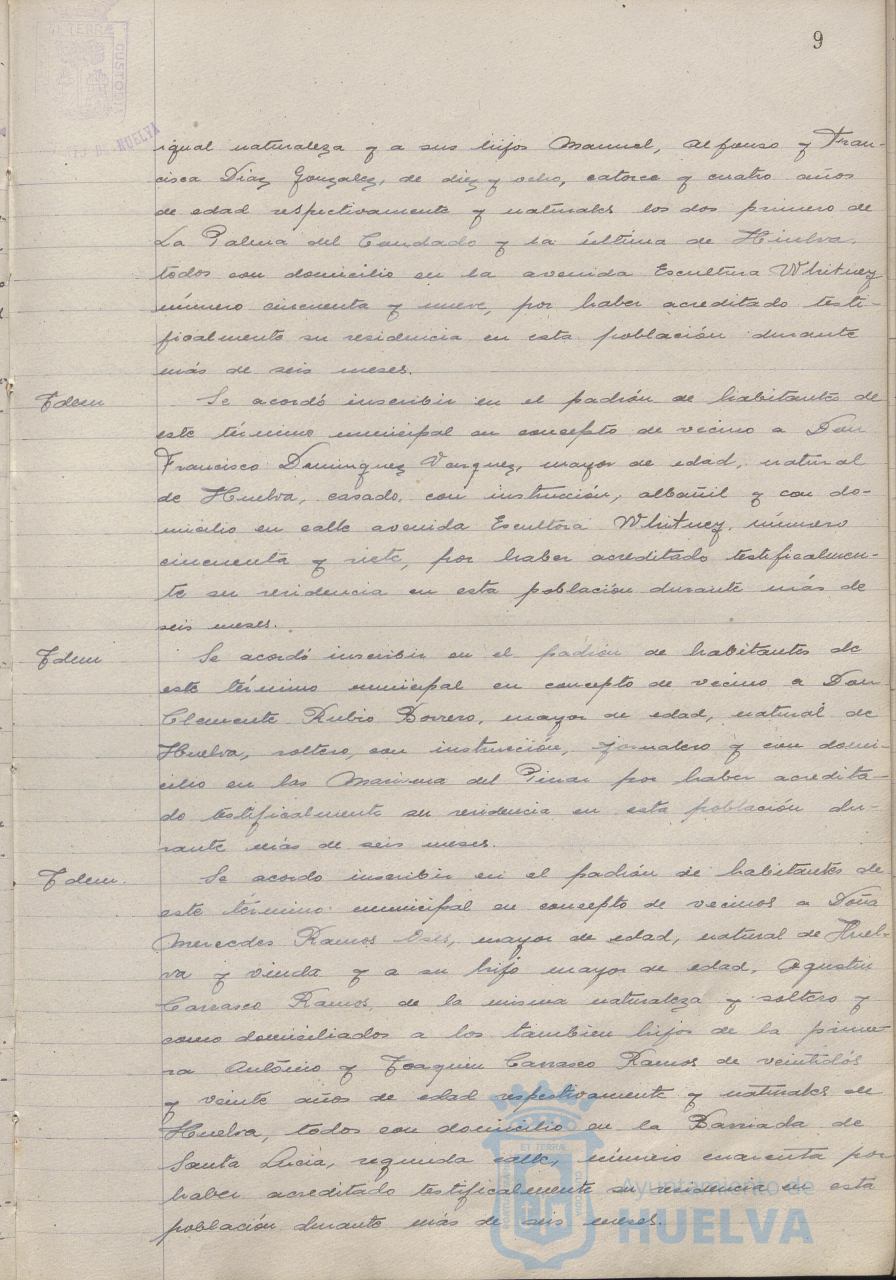 9
ET TERRÆ
CUSTODIA
DE HUELVA
igual naturaleza y a sus hijos Manuel, Alfonso y Fran-
cisca Diaz Gonzalez, de diez y ocho, catorce y cuatro años
de edad respectivamente y naturales los dos primero de
La Palma del Condado y la última de Huelva,
todos con domicilio en la avenida Escultura Whitney
número cincuenta y nueve, por haber acreditado testi-
ficalmente su residencia en esta población durante
más de seis meses.
Idem
Se acordó inscribir en el padrón de habitantes de
este término municipal en concepto de vecino a Don
Francisco Dominguez Vazquez, mayor de edad, natural
de Huelva, casado, con instrucción, albañil y con do-
micilio en calle avenida Escultora Whitney, número
cincuenta y siete, por haber acreditado testificalmen-
te su residencia en esta población durante más de
seis meses.
Idem
Se acordó inscribir en el padrón de habitantes de
este término municipal en concepto de vecino a Don
Clemente Rubio Borrero, mayor de edad, natural de
Huelva, soltero, con instrucción, jornalero y con domi-
cilio en las Marisma del Pinar por haber acredita-
do testificalmente su residencia en esta población du-
rante más de seis meses.
Idem.
Se acordo inscribir en el padrón de habitantes de
este término municipal en concepto de vecinos a Doña
Mercedes Ramos mayor de edad, natural de Huel-
va y viuda y a su hijo mayor de edad, Agustin
Carrasco Ramos, de la misma naturaleza y soltero y
como domiciliados a los tambien hijos de la prime-
ra António y Joaquin Carrasco Ramos de veintidós
y veinte años de edad respectivamente y naturales de
Huelva, todos con domicilio en la Barriada de
Santa Lucia, segunda calle, número cuarenta por
haber acreditado testificalmente su residencia en esta
población durante más de seis meses.
ET TERRÆ
CUSTODIA
Ayuntamiento de
HUELVA